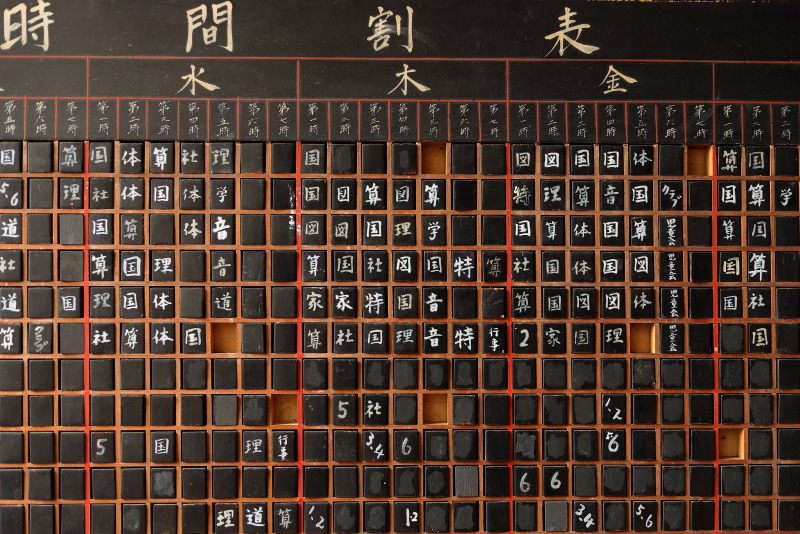 時間割表
水 木 金
第五時 第六時 第七時 第一時 第二時 第三時 第四時 第五時 第六時 第七時 第一時 第二時 第三時 第四時 第六時 第七時 第一時 第二時 第三時 第四時 第五時 第六時 第七時 第一時 第二時
国 算 国 体 算 社 理 国 図 図 国 国 体 算 国
5,6 理 社 体 国 体 学 国 図 算 図 算 特 理 算 音 国 クラブ 国 算 学
道 国 算 体 音 図 図 国 理 学 国 算 体 国 算 児童会 算 国
社 算 国 理 音 算 国 社 図 国 特 算 社 国 体 国 図 児童会 国 算
道 国 理 国 体 道 家 家 特 国 音 算 国 図 図 体 児童会 国 社
算 クラブ 社 算 体 国 算 社 国 理 音 特 行事 2 家 国 理 児童会 国
5 社 1,2
5 国 理 行事 3,4 6 5,6
6 6
理 道 算 1,2 1,2 3,4 5,6